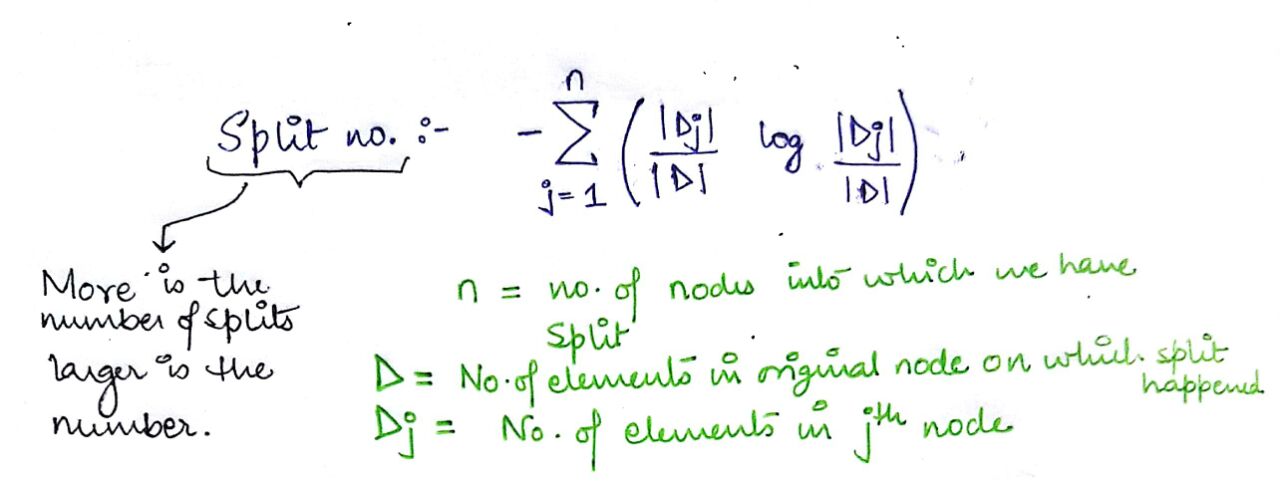 Split no. :- - n∑j=1 ( |Dj|/|D| log |Dj|/|D| )
More is the
number of splits
larger is the
number.
n = no. of nodes into which we have
split
D = No. of elements in original node on which split
happened
Dj = No. of elements in jth node